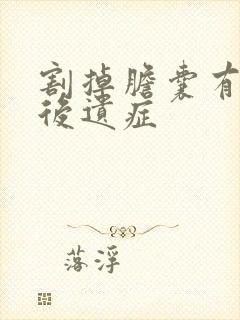 割掉膽囊有
後遺症
落浮